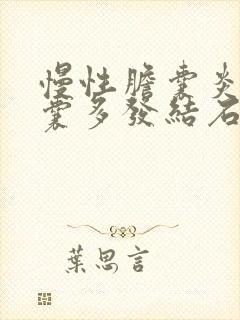 慢性膽囊炎
囊多發結石
葉思言